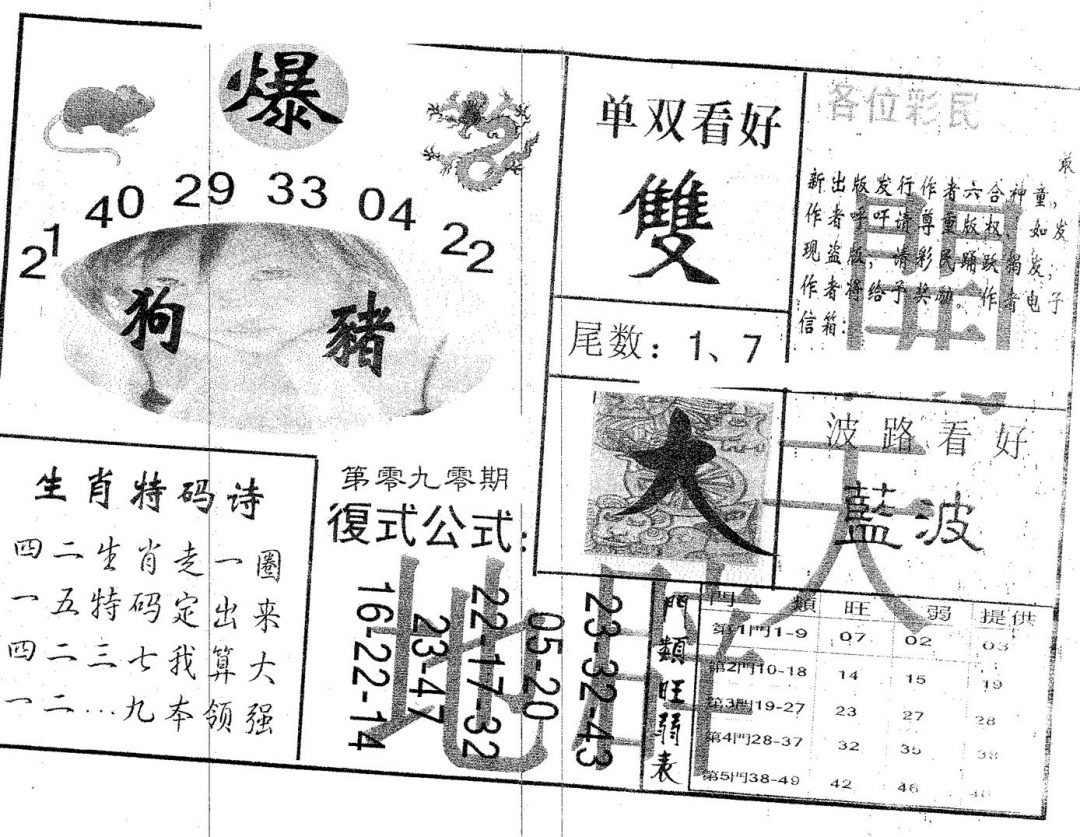 爆
21 40 29 33 04 22
狗 豬
单双看好
雙
尾数：1、7
各位彩民
新出版发行作者六合神童，
作者呼吁请尊重版权，如发
现盗版，请彩民踊跃揭发，
作者将给予奖励。作者电子
信箱：
大
波路看好
藍波
生肖特码诗
四二生肖走一圈
一五特码定出来
四二三七我算大
一二…九本领强
第零九零期
復式公式：
16-22-14
23-47
22-17-32
05-20
23-32-43
門類旺弱表
門 類 旺 弱 提供
第1門1-9 07 02 03
第2門10-18 14 15 19
第3門19-27 23 27 28
第4門28-37 32 35 38
第5門38-49 42 46